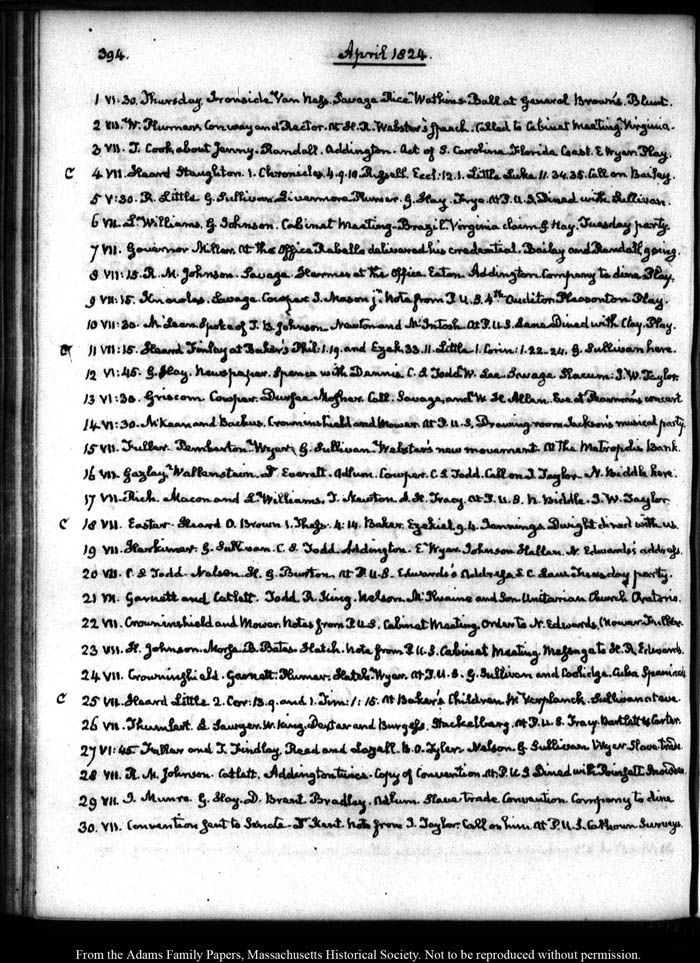 394. April 1824.
1 VI:30. Thursday Ironside Van Ness. Savage Rice Watkins Ball at General Brown's. Blunt.
2 VII. W. Plumer, Conway and Rector. At H.R. Webster's speech. Called to Cabinet Meeting Virginia.
3 VII. T. Cook about Jenny. Randall. Addington. Act of S. Carolina Florida Coast. E Wyer Play.
C 4 VII. Heard Staughton. 1. Chronicles. 4.9.10 Russell. Eccl: 12.1. Little Luke 11.34.35. Call on Bailey.
5 V:30. R. Little G. Sullivan Livermore Plumer. G. Hay. Frye. At P.U.S. Dined with Sullivan.
6 VII. L. Williams. G. Johnson. Cabinet Meeting. Brazil. Virginia claim G Hay. Tuesday party.
7 VII. Governor Miller. At the Office Rebello delivered his credential. Bailey and Randall going.
8 VII:15. R. M. Johnson. Savage at the Office. Eaton. Addington Company to dine Play.
9 VII:15. Knowles. Savage. Cowper J. Mason jr. Note from P.U.S. 4th Auditor Pleasonton Play.
10 VII:30. McLean Spoke of J. B. Johnson. Newton and McIntosh At P.U.S. Dined with Clay. Play.
11 VII:15. Heard Finlay at Baker's Phil: 1.19. and Ezek. 33.11. Little 1. Corin: 1.22-24. G. Sullivan here.
12 VI:45. G. Hay. Newspaper. Spence with Dannie. C. S. Todd W. Lee Savage Slacum. J. W. Taylor.
13 VI:30. Griscom Cowper. Durfee Mosher Call. Savage, and W. H. Allen. Eve at Pearman's concert
14 VI:30. McKean and Backus. Crowninshield and Mower. At P.U.S. Drawing room Jackson's musical party.
15 VII. Fuller. Pemberton Wyer G. Sullivan Webster's new movement. At the Metropolis Bank.
16 VII. Gazlay Wallenstein. Everett. Adlum. Cowper. C. S Todd. Call on J. Taylor. N. Biddle here.
17 VII. Rich. Macon and L. Williams. T. Newton A. H. Tracy. At P.U.S. N. Biddle. J. W. Taylor
C 18 VII. Easter. Heard O. Brown 1. Thess. 4:14. Baker. Ezekiel 9.4. Jennings Dwight dined with us.
19 VII. Herkimer. G. Sullivan. C. S. Todd. Addington. E. Wyer. Johnson Hellen. N. Edwards's address.
20 VII. C. S Todd. Nelson. H. G. Burton. At P.U.S. Edwards's Address & C. Law Tuesday party.
21 VII. Garnett and Catlett. Todd R. King. Nelson. McIlvaine and Son Unitarian Church Oratorio.
22 VII. Crowninshield and Mower. Notes from P.U.S. Cabinet Meeting. Order to N. Edwards. Mower
23 VII. H. Johnson. Morse B. Bates Hatch. Note from P.U.S. Cabinet Meeting Message to H. R. Edwards.
24 VII. Crowninshield. Garnett. Plumer. Hatch. Wyer. At P.U.S. G. Sullivan and Coolidge. Cuba Specimens
C 25 VII. Heard Little 2. Cor: 13.9. and 1. Tim: 1:15. At Baker's Children. W. Verplanck. Sullivan eve.
26 VII. Thumbert. L Sawyer. W. King. Dexter and Burgess. Stackelberg. At P.U.S. Tracy. Bartlett & Carter.
27 VI:45. Fuller and T. Findlay. Reed and Lazell. B. O. Tyler. Nelson. G. Sullivan Wyer Slave trade
28 VII. R. M. Johnson. Catlett. Addington twice. Copy of Convention. At P.U.S Dined with Poinsett.
29 VII. I. Munro. G. Hay. D. Brent Bradley. Adlum Slave trade Convention Company to dine
30. VII. Convention sent to Senate. Kent. Note from J. Taylor. Call on him. At P.U.S. Calhoun. Surveys.
From the Adams Family Papers, Massachusetts Historical Society. Not to be reproduced without permission.